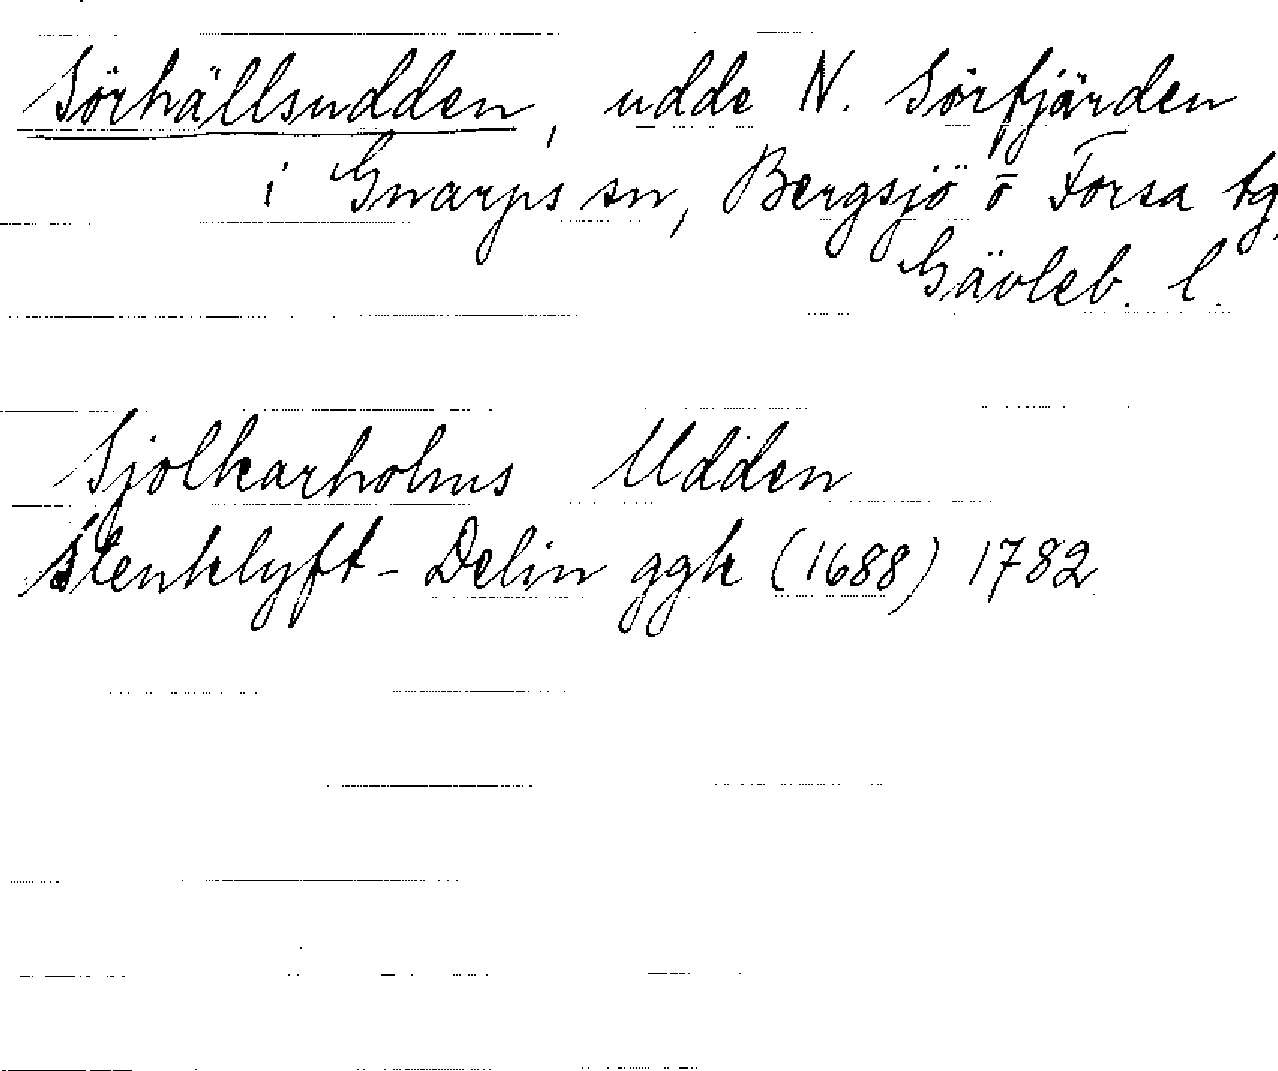 Sörhällsudden, udde N. Sörfjärden
i Gnarps sn, Bergsjö o Forsa tg,
Gävleb. l.
Sjolkarholms Udden
Stenklyft - Delin ggk (1688) 1782